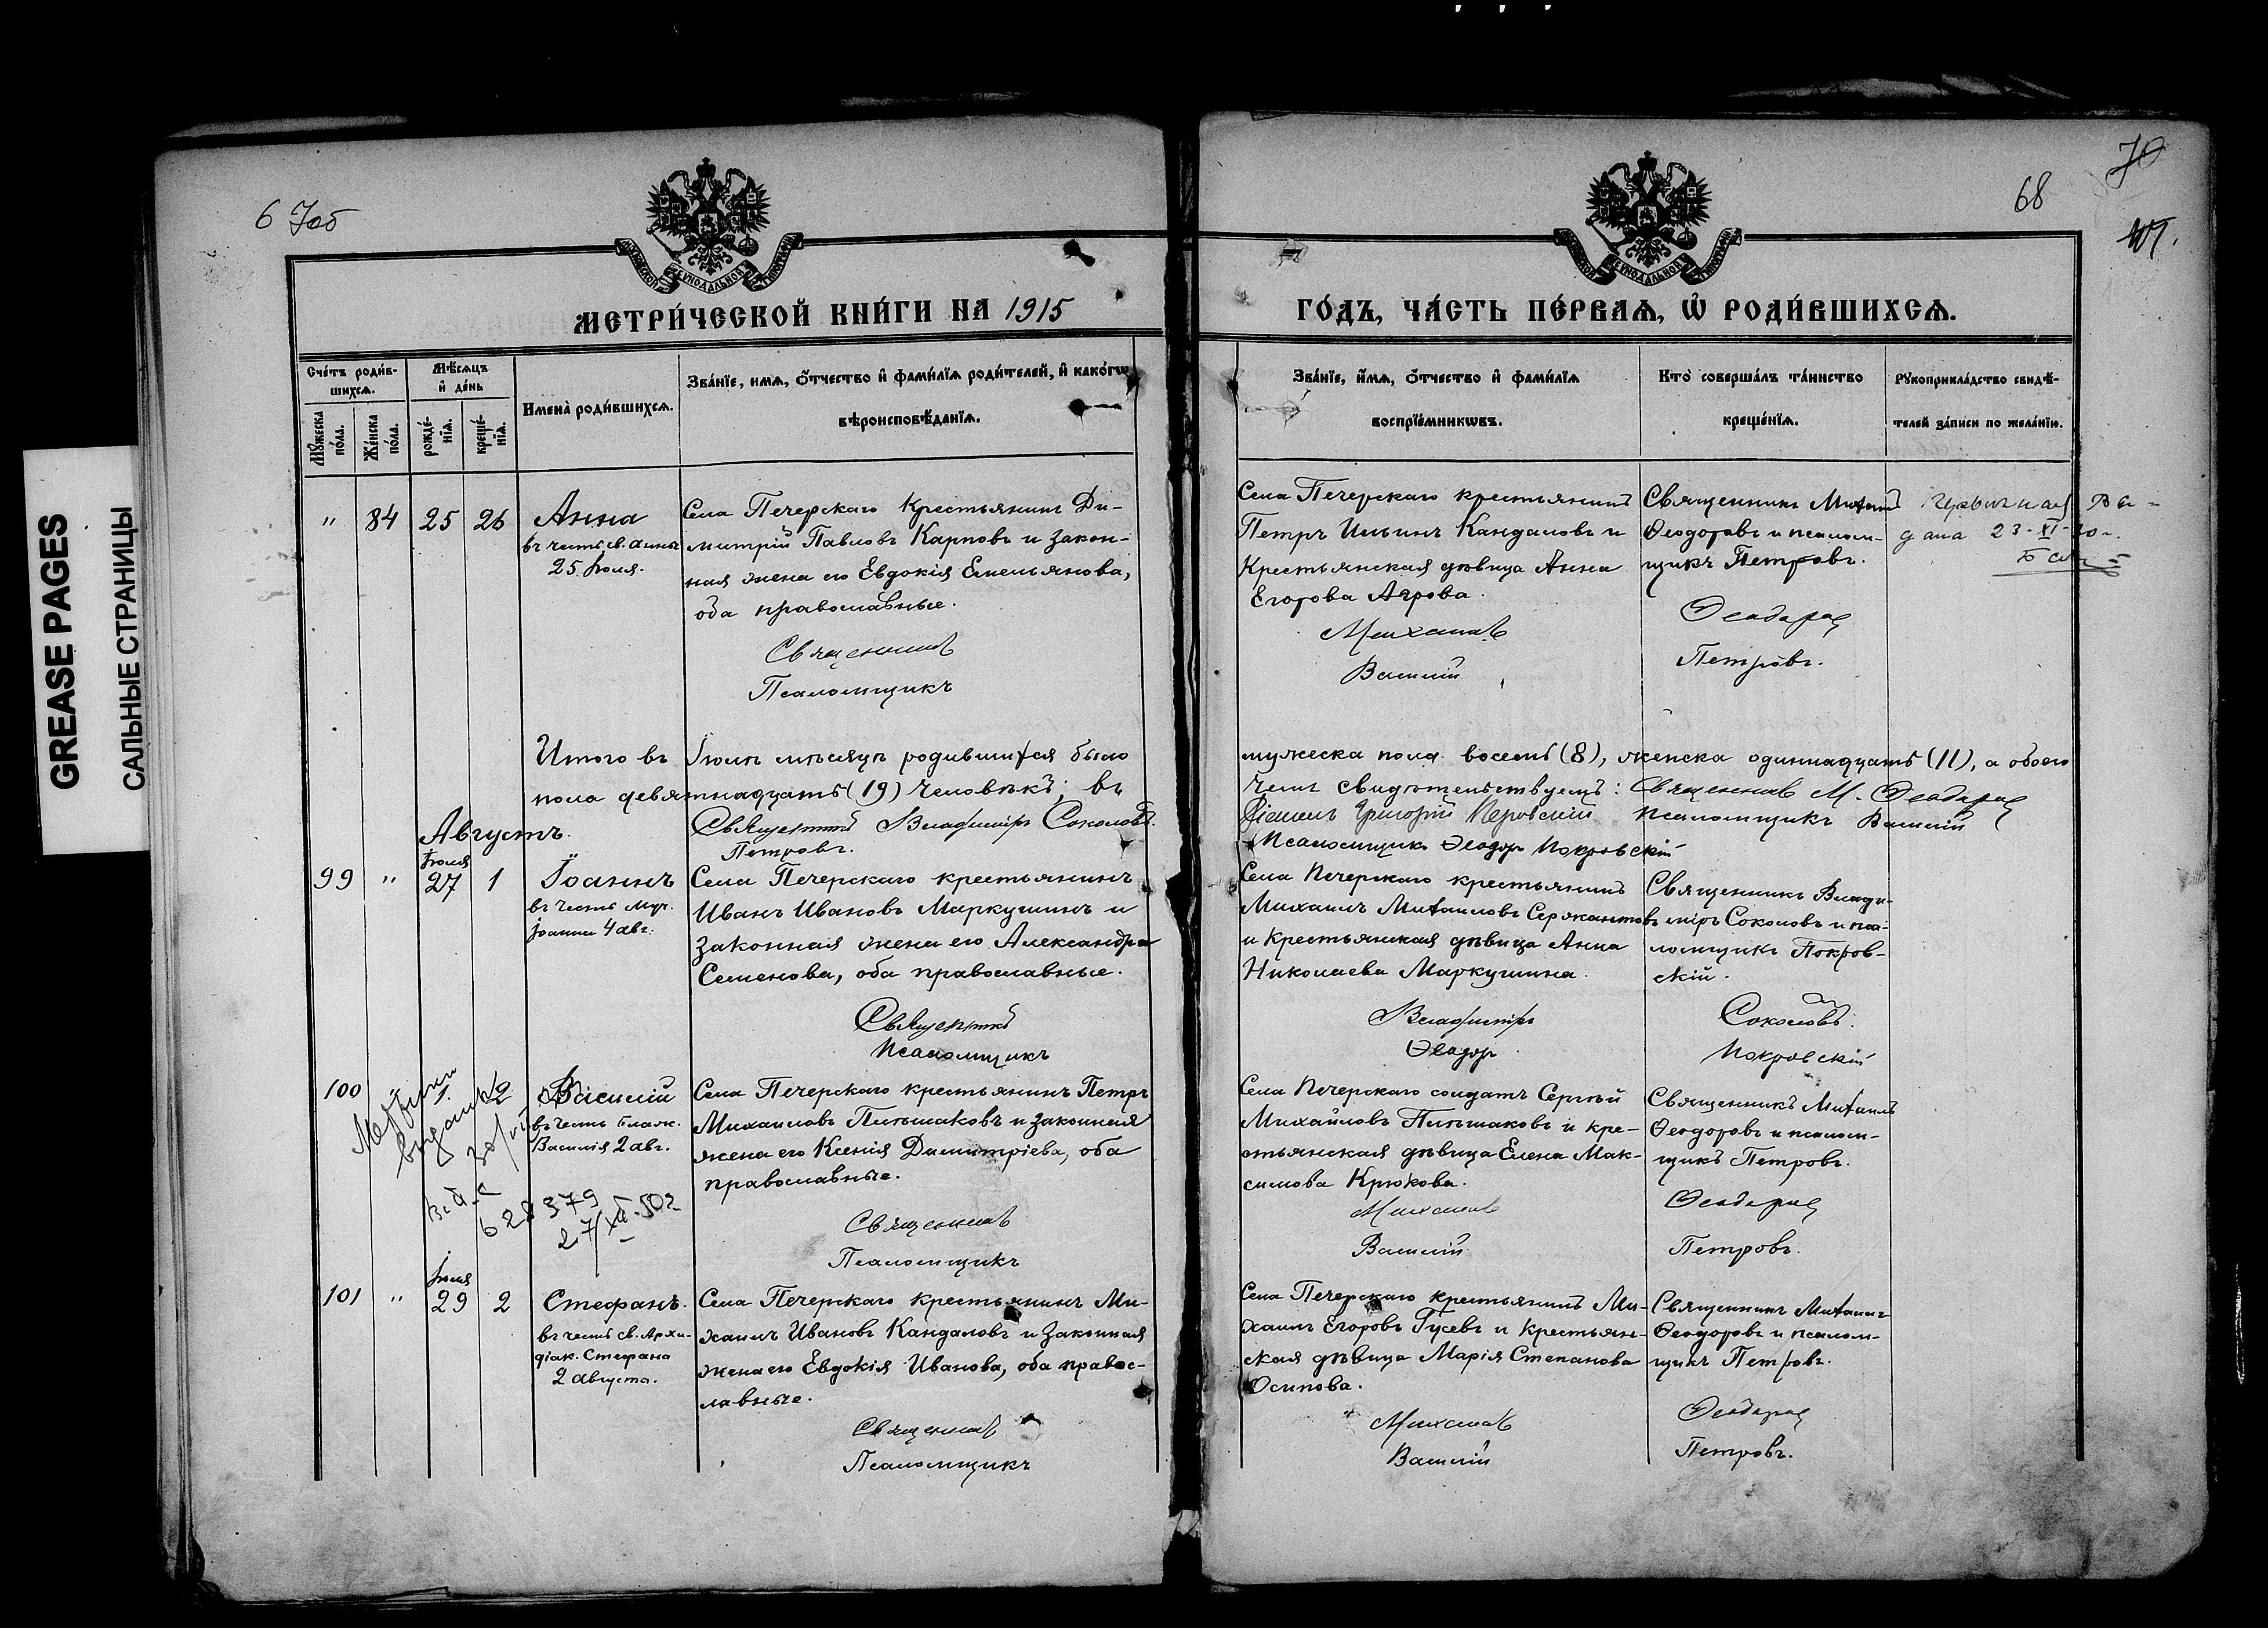 67об
68
70
МЕТРИ́ЧЕСКОЙ КНИ́ГИ НА 1915
ГО́ДЪ, ЧА́СТЬ ПЕ́РВАѦ, Ѡ҆ РОДИ́ВШИХСѦ.
Сче́тъ роди́в-
шихсѧ.
Мꙋ́жеска по́ла.
Же́нска по́ла.
Мѣ́сѧцъ
и҆ де́нь
рожде́-
нїѧ.
креще́-
нїѧ.
Имена̀ роди́вшихсѧ.
Зва́нїе, имѧ, ѻ҆́тчество и҆ фами́лїѧ роди́телей, и҆ како́гѡ
вѣроисповѣ́данїѧ.
Зва́нїе, и҆́мѧ, ѻ҆́тчество и҆ фами́лїѧ
воспрїе́мникѡвъ.
Кто̀ соверша́лъ та́инство
креще́нїѧ.
Рꙋкоприкла́дство свидѣ́-
телей за́писи по жела́нїю.
" 84 25 26 Анна
въ честь св. Анны
25 Іюля.
Села Печерскаго крестьянинъ Ди-
митрій Павловъ Карповъ и закон-
ная жена его Евдокія Емельянова,
оба православные.
Священникъ
Псаломщикъ
Села Печерскаго крестьянинъ
Петръ Ильинъ Кандаловъ и
крестьянская дѣвица Анна
Егорова
Михаилъ
Василій
Священникъ Михаилъ
Ѳеодоровъ и псалом-
щикъ Петровъ.
Ѳеодоровъ
Петровъ.
дана 23-XI-
Итого въ Іюлѣ мѣсяцѣ родившихся было
мужеска пола восемь (8), женска одиннадцать (11), а обоего
пола девятнадцать (19) человѣкъ; въ
чемъ свидѣтельствуемъ: Священникъ М. Ѳеодоровъ
Священникъ Владиміръ Соколовъ.
Діаконъ Григорій псаломщикъ Василій
Петровъ.
Псаломщикъ Ѳеодоръ Покровскій
Августъ.
99 " Іюля 27 1 Іоаннъ
въ честь муч.
Іоанна 4 авг.
Села Печерскаго крестьянинъ
Иванъ Ивановъ Маркушинъ и
законная жена его Александра
Семенова, оба православные.
Священникъ
Псаломщикъ
Села Печерскаго крестьянинъ
Михаилъ Михаиловъ Сержантовъ
и крестьянская дѣвица Анна
Николаева Маркушина.
Владиміръ
Ѳеодоръ
Священникъ Влади-
міръ Соколовъ и пса-
ломщикъ Покров-
скій.
Соколовъ.
Покровскій
100 " 1 2 Василій
въ честь блаж.
Василія 2 авг.
Метрики
выданы
628379
27/XII-50г.
Села Печерскаго крестьянинъ Петръ
Михаиловъ Пильшаковъ и законная
жена его Ксенія Димитріева, оба
православные.
Священникъ
Псаломщикъ
Села Печерскаго солдатъ Сергѣй
Михайловъ Пильшаковъ и кре-
стьянская дѣвица Елена Мак-
симова Крюкова.
Михаилъ
Василій
Священникъ Михаилъ
Ѳеодоровъ и псалом-
щикъ Петровъ.
Ѳеодоровъ
Петровъ.
101 " Іюля 29 2 Стефанъ.
въ честь св. Архи-
діак. Стефана
2 августа.
Села Печерскаго крестьянинъ Ми-
хаилъ Ивановъ Кандаловъ и законная
жена его Евдокія Иванова, оба правос-
лавные.
Священникъ
Псаломщикъ
Села Печерскаго крестьянинъ Ми-
хаилъ Егоровъ Гусевъ и крестьян-
ская дѣвица Марія Степанова
Осипова.
Михаилъ
Василій
Священникъ Михаилъ
Ѳеодоровъ и псалом-
щикъ Петровъ.
Ѳеодоровъ
Петровъ.
GREASE PAGES
САЛЬНЫЕ СТРАНИЦЫ